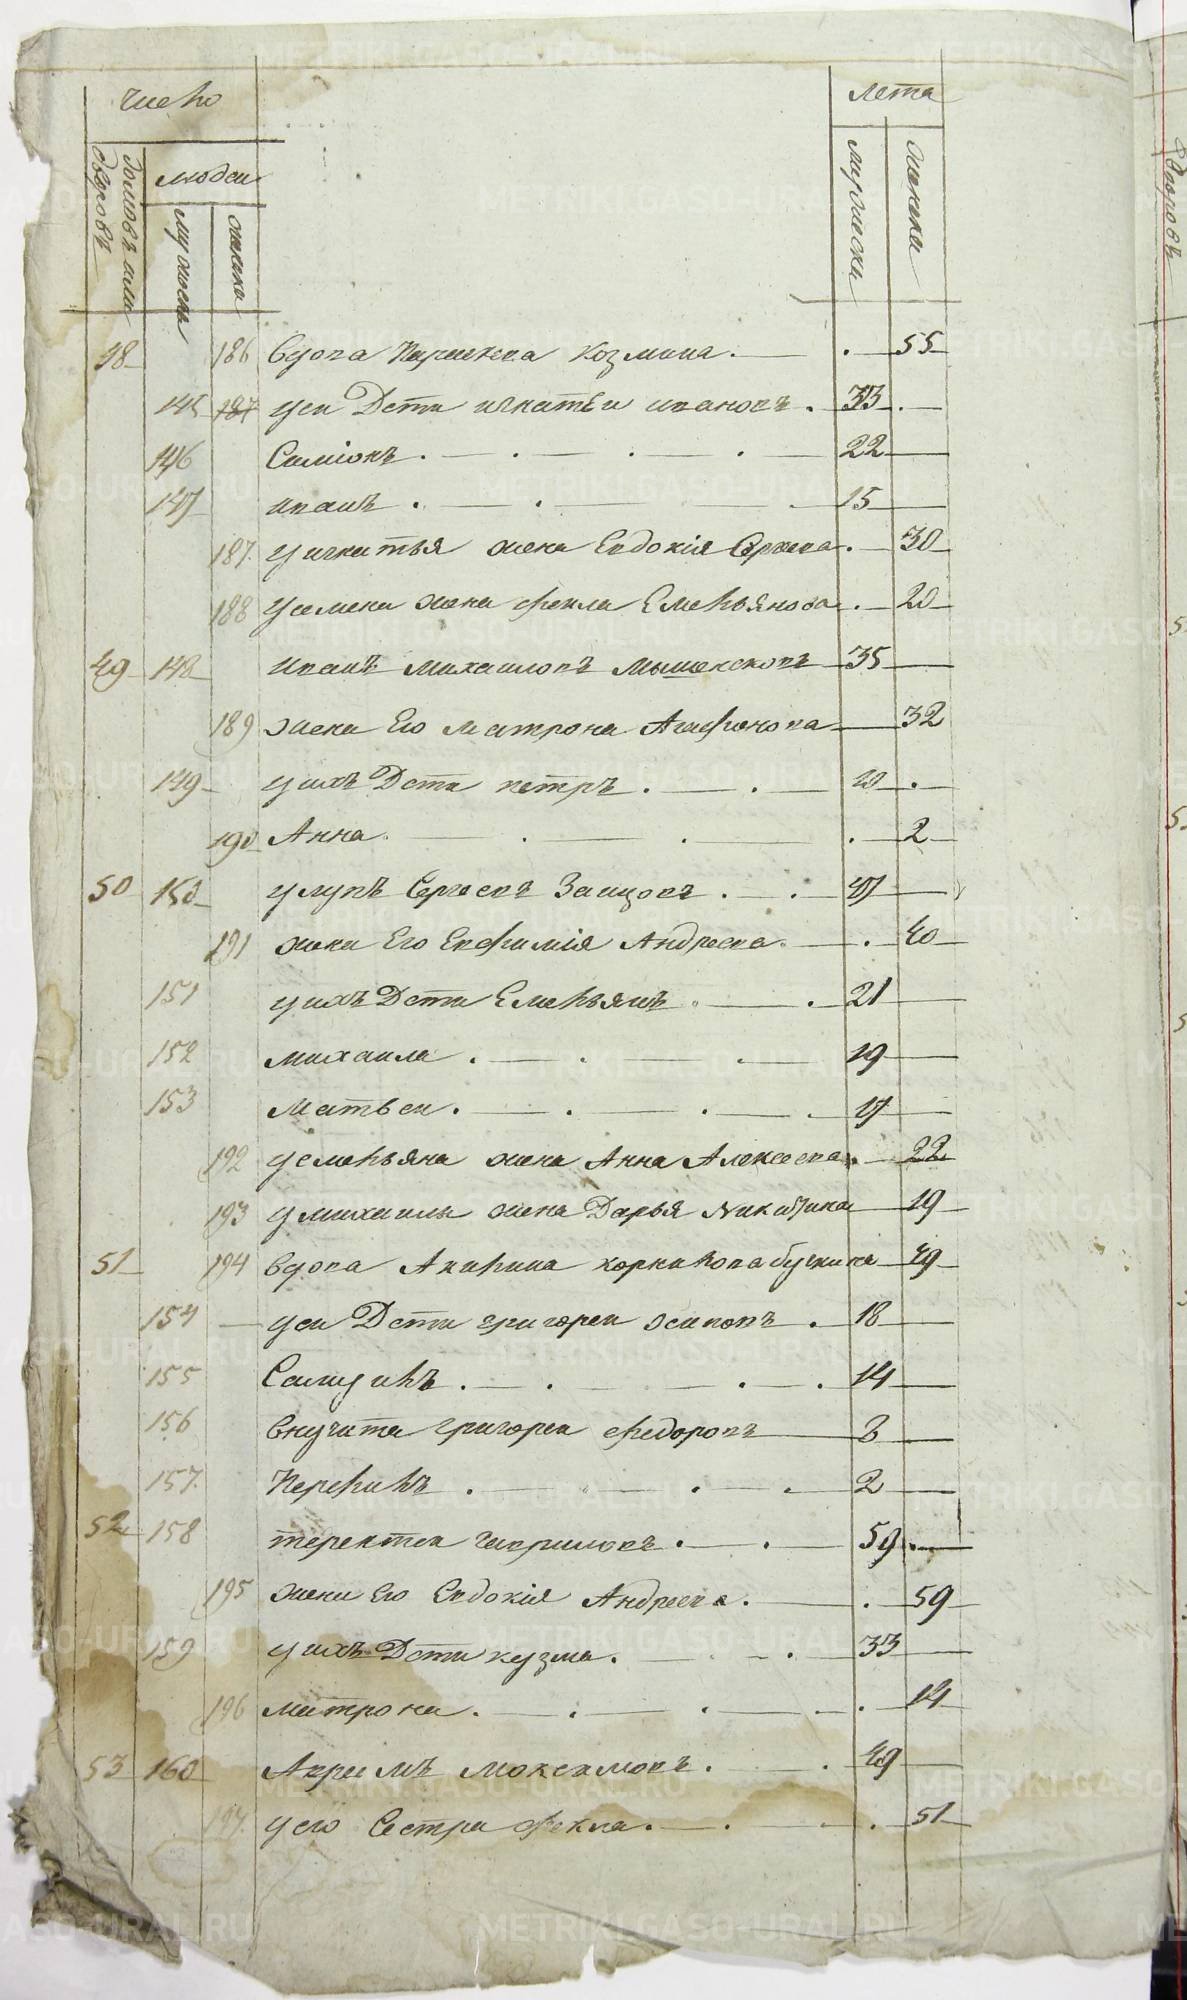 число
лета
домовъ или дворовъ
людей
мужеска
женска
мужески
женски
48 186 вдова Парасковья Козмина. — . — 55 —
145 187 у ея Дети игнатеи ивановъ . 33 . —
146 Симіонъ . — . — . — . — 22 —
147 иванъ . — . — . — 15 —
187 у игнатья жена Евдокія Сергеева . — 30 —
188 у семена жена фекла Емельянова . — 20 —
49 148 иванъ михаиловъ мышенсковъ — 35 —
189 жена Его матрона Агафонова — 32
149 у ихъ Дети петръ . — . — 10 .
190 Анна . — . — . — . 2 —
50 150 у лупъ Сергеевъ Заицовъ . — . 47 —
191 жена Его Евфимія Андреева . — . 40 —
151 у ихъ Дети Емельянъ — . 21 —
152 михаила . — . — . — 19 —
153 Матвеи . — . — . — . 17 —
192 у емельяна жена Анна Алексеева . — 22
193 у михаилы жена Дарья Никитина — 19 —
51 194 вдова Акилина корнилова — 49 —
154 — у ея Дети григореи осиповъ . 18 —
155 Самуилъ . — . — . — . 14 —
156 внучата григореи федоровъ — 3 —
157. Перфилъ . — . — . 2 —
52 158 терентеи гавриловъ . — . — 59 . —
195 жена Его Евдокія Андреева . — . 59 —
159 у ихъ Дети кузма . — . 33 —
196 матрона . — . — . — . 14 —
53 160 Авраамъ Моксимовъ . — . 49 —
197. у его Сестра фекла . — . — . 51 —
дворовъ
METRIKI.GASO-URAL.RU